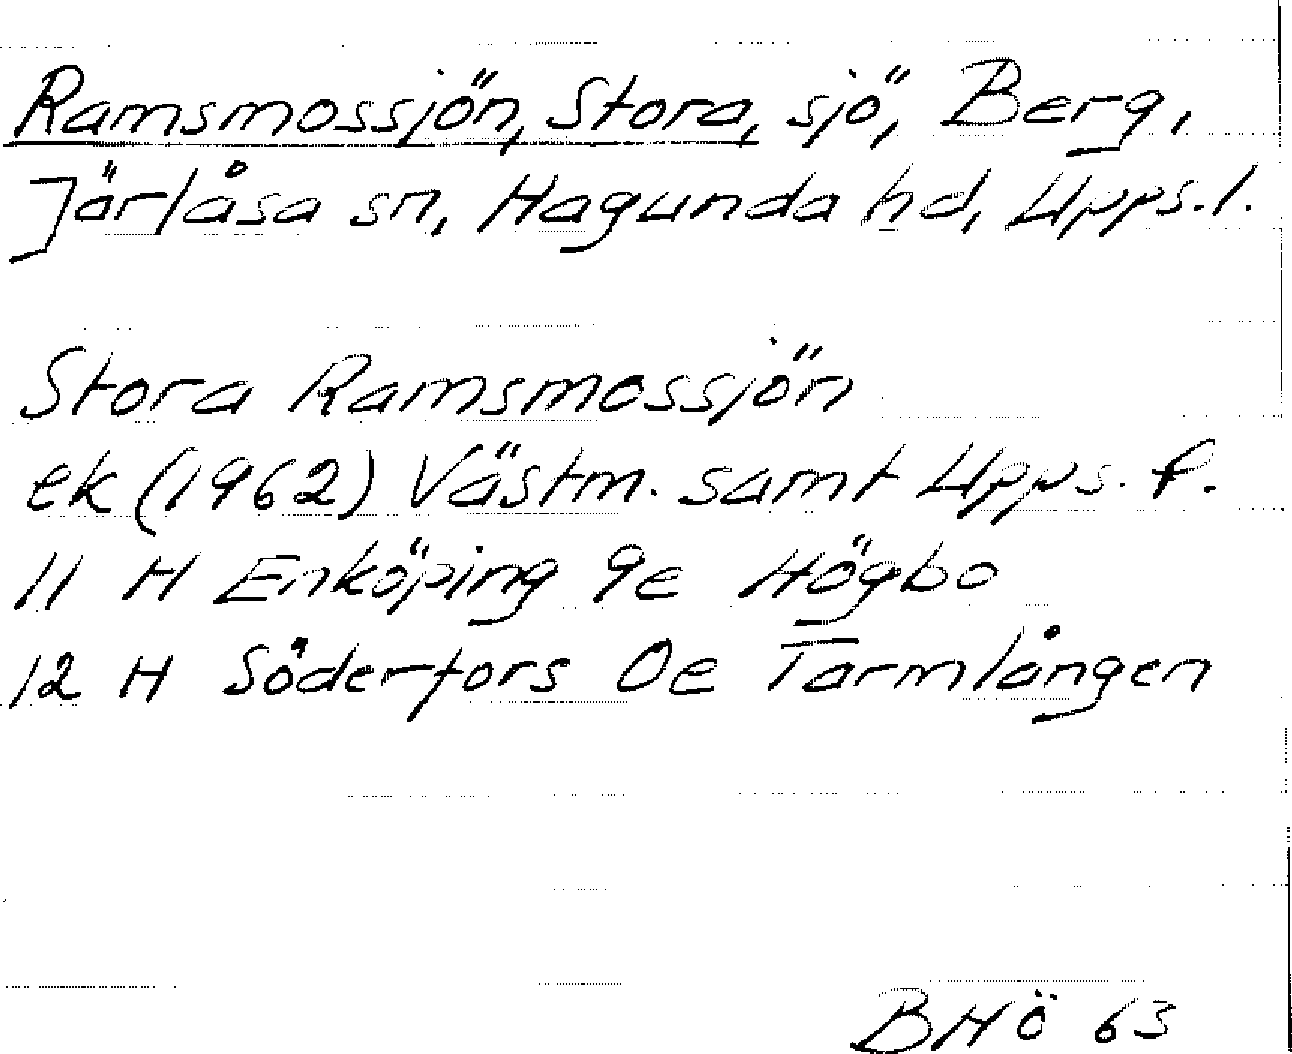 Ramsmossjön, Stora, sjö, Berg,
Järlåsa sn, Hagunda hd, Upps. l.
Stora Ramsmossjön
ek (1962) Västm. samt Upps. f.
11 H Enköping 9e Högbo
12 H Söderfors 0e Tarmlången
BHÖ 63